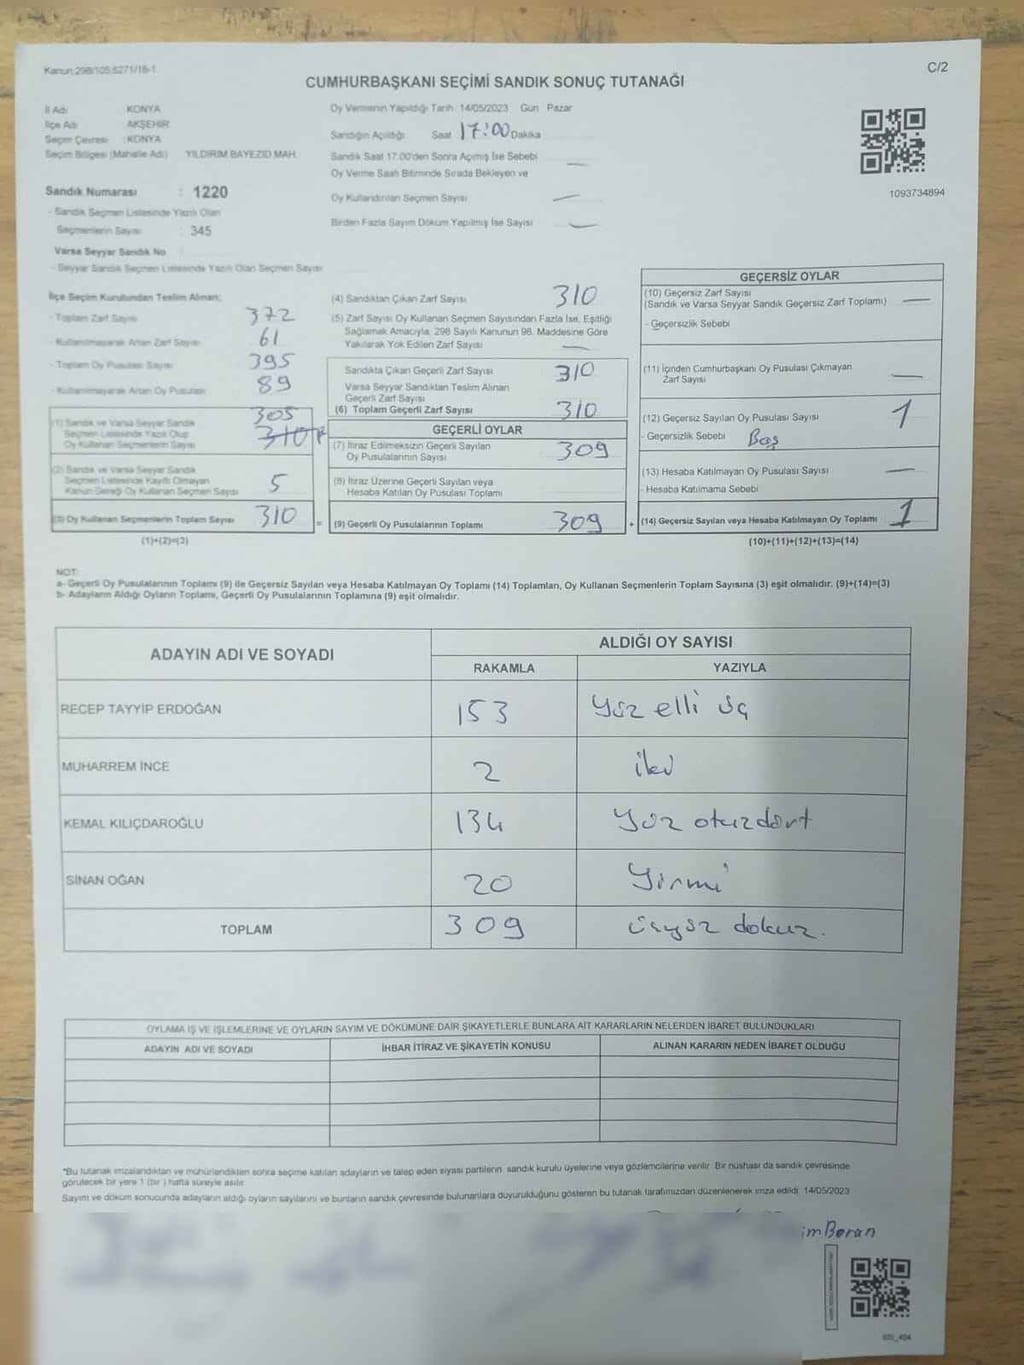 Kanun:298/105,6271/16-1
C/2
CUMHURBAŞKANI SEÇİMİ SANDIK SONUÇ TUTANAĞI
İl Adı : KONYA
İlçe Adı : AKŞEHİR
Seçim Çevresi : KONYA
Seçim Bölgesi (Mahalle Adı) YILDIRIM BAYEZID MAH.
Sandık Numarası : 1220
- Sandık Seçmen Listesinde Yazılı Olan
Seçmenlerin Sayısı : 345
Varsa Seyyar Sandık No
- Seyyar Sandık Seçmen Listesinde Yazılı Olan Seçmen Sayısı
Oy Vermenin Yapıldığı Tarih: 14/05/2023 Gün Pazar
Sandığın Açıldığı Saat 17:00 Dakika
Sandık Saat 17.00'den Sonra Açımış İse Sebebi —
Oy Verme Saati Bitiminde Sırada Bekleyen ve
Oy Kullandırılan Seçmen Sayısı —
Birden Fazla Sayım Döküm Yapılmış İse Sayısı —
1093734894
İlçe Seçim Kurulundan Teslim Alınan;
- Toplam Zarf Sayısı 372
- Kullanılmayarak Artan Zarf Sayısı 61
- Toplam Oy Pusulası Sayısı 395
- Kullanılmayarak Artan Oy Pusulası 89
305
(1) Sandık ve Varsa Seyyar Sandık
Seçmen Listesinde Yazılı Olup
Oy Kullanan Seçmenlerin Sayısı 310
(2) Sandık ve Varsa Seyyar Sandık
Seçmen Listesinde Kayıtlı Olmayan
Kanun Gereği Oy Kullanan Seçmen Sayısı 5
(3) Oy Kullanan Seçmenlerin Toplam Sayısı 310
(1)+(2)=(3)
(4) Sandıktan Çıkan Zarf Sayısı 310
(5) Zarf Sayısı Oy Kullanan Seçmen Sayısından Fazla İse, Eşitliği
Sağlamak Amacıyla, 298 Sayılı Kanunun 98. Maddesine Göre
Yakılarak Yok Edilen Zarf Sayısı —
Sandıkta Çıkan Geçerli Zarf Sayısı 310
Varsa Seyyar Sandıktan Teslim Alınan
Geçerli Zarf Sayısı
(6) Toplam Geçerli Zarf Sayısı 310
GEÇERLİ OYLAR
(7) İtiraz Edilmeksizin Geçerli Sayılan
Oy Pusulalarının Sayısı 309
(8) İtiraz Üzerine Geçerli Sayılan veya
Hesaba Katılan Oy Pusulası Toplamı
= (9) Geçerli Oy Pusulalarının Toplamı 309
GEÇERSİZ OYLAR
(10) Geçersiz Zarf Sayısı
(Sandık ve Varsa Seyyar Sandık Geçersiz Zarf Toplamı) —
- Geçersizlik Sebebi
(11) İçinden Cumhurbaşkanı Oy Pusulası Çıkmayan
Zarf Sayısı —
(12) Geçersiz Sayılan Oy Pusulası Sayısı 1
- Geçersizlik Sebebi Boş
(13) Hesaba Katılmayan Oy Pusulası Sayısı —
- Hesaba Katılmama Sebebi
+ (14) Geçersiz Sayılan veya Hesaba Katılmayan Oy Toplamı 1
(10)+(11)+(12)+(13)=(14)
NOT:
a- Geçerli Oy Pusulalarının Toplamı (9) ile Geçersiz Sayılan veya Hesaba Katılmayan Oy Toplamı (14) Toplamları, Oy Kullanan Seçmenlerin Toplam Sayısına (3) eşit olmalıdır. (9)+(14)=(3)
b- Adayların Aldığı Oyların Toplamı, Geçerli Oy Pusulalarının Toplamına (9) eşit olmalıdır.
ADAYIN ADI VE SOYADI ALDIĞI OY SAYISI
RAKAMLA YAZIYLA
RECEP TAYYİP ERDOĞAN 153 Yüz elli üç
MUHARREM İNCE 2 iki
KEMAL KILIÇDAROĞLU 134 Yüz otuzdört
SİNAN OĞAN 20 Yirmi
TOPLAM 309 üçyüz dokuz.
OYLAMA İŞ VE İŞLEMLERİNE VE OYLARIN SAYIM VE DÖKÜMÜNE DAİR ŞİKAYETLERLE BUNLARA AİT KARARLARIN NELERDEN İBARET BULUNDUKLARI
ADAYIN ADI VE SOYADI İHBAR İTİRAZ VE ŞİKAYETİN KONUSU ALINAN KARARIN NEDEN İBARET OLDUĞU
*Bu tutanak imzalandıktan ve mühürlendikten sonra seçime katılan adayların ve talep eden siyasi partilerin sandık kurulu üyelerine veya gözlemcilerine verilir. Bir nushası da sandık çevresinde
görülecek bir yere 1 (bir ) hafta süreyle asılır.
Sayım ve döküm sonucunda adayların aldığı oyların sayılarını ve bunların sandık çevresinde bulunanlara duyurulduğunu gösteren bu tutanak tarafımızdan düzenlenerek imza edildi. 14/05/2023
im Boran